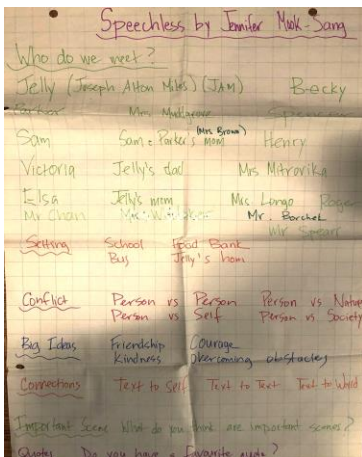 Speechless by Jennifer Mook-Sang
Who do we meet?
Jelly (Joseph Alton Miles) (JAM) Becky
Parker Mrs Muskgrove Spencer
Sam Sam + Parker's mom (Mrs Brown) Henry
Victoria Jelly's dad Mrs Mitrovika
Elsa Jelly's mom Mrs. Longo Roger
Mr Chan Mr. Borchek
Mr Spearr
Setting School Food Bank
Bus Jelly's hom
Conflict Person vs Person Person vs Nature
Person vs Self Person vs Society
Big Ideas Friendship Courage
Kindness overcoming obstacles
Connections Text to Self Text to Text Text to World
Important Scene What do you think are important scenes?
Quotes Do you have a favourite quote?